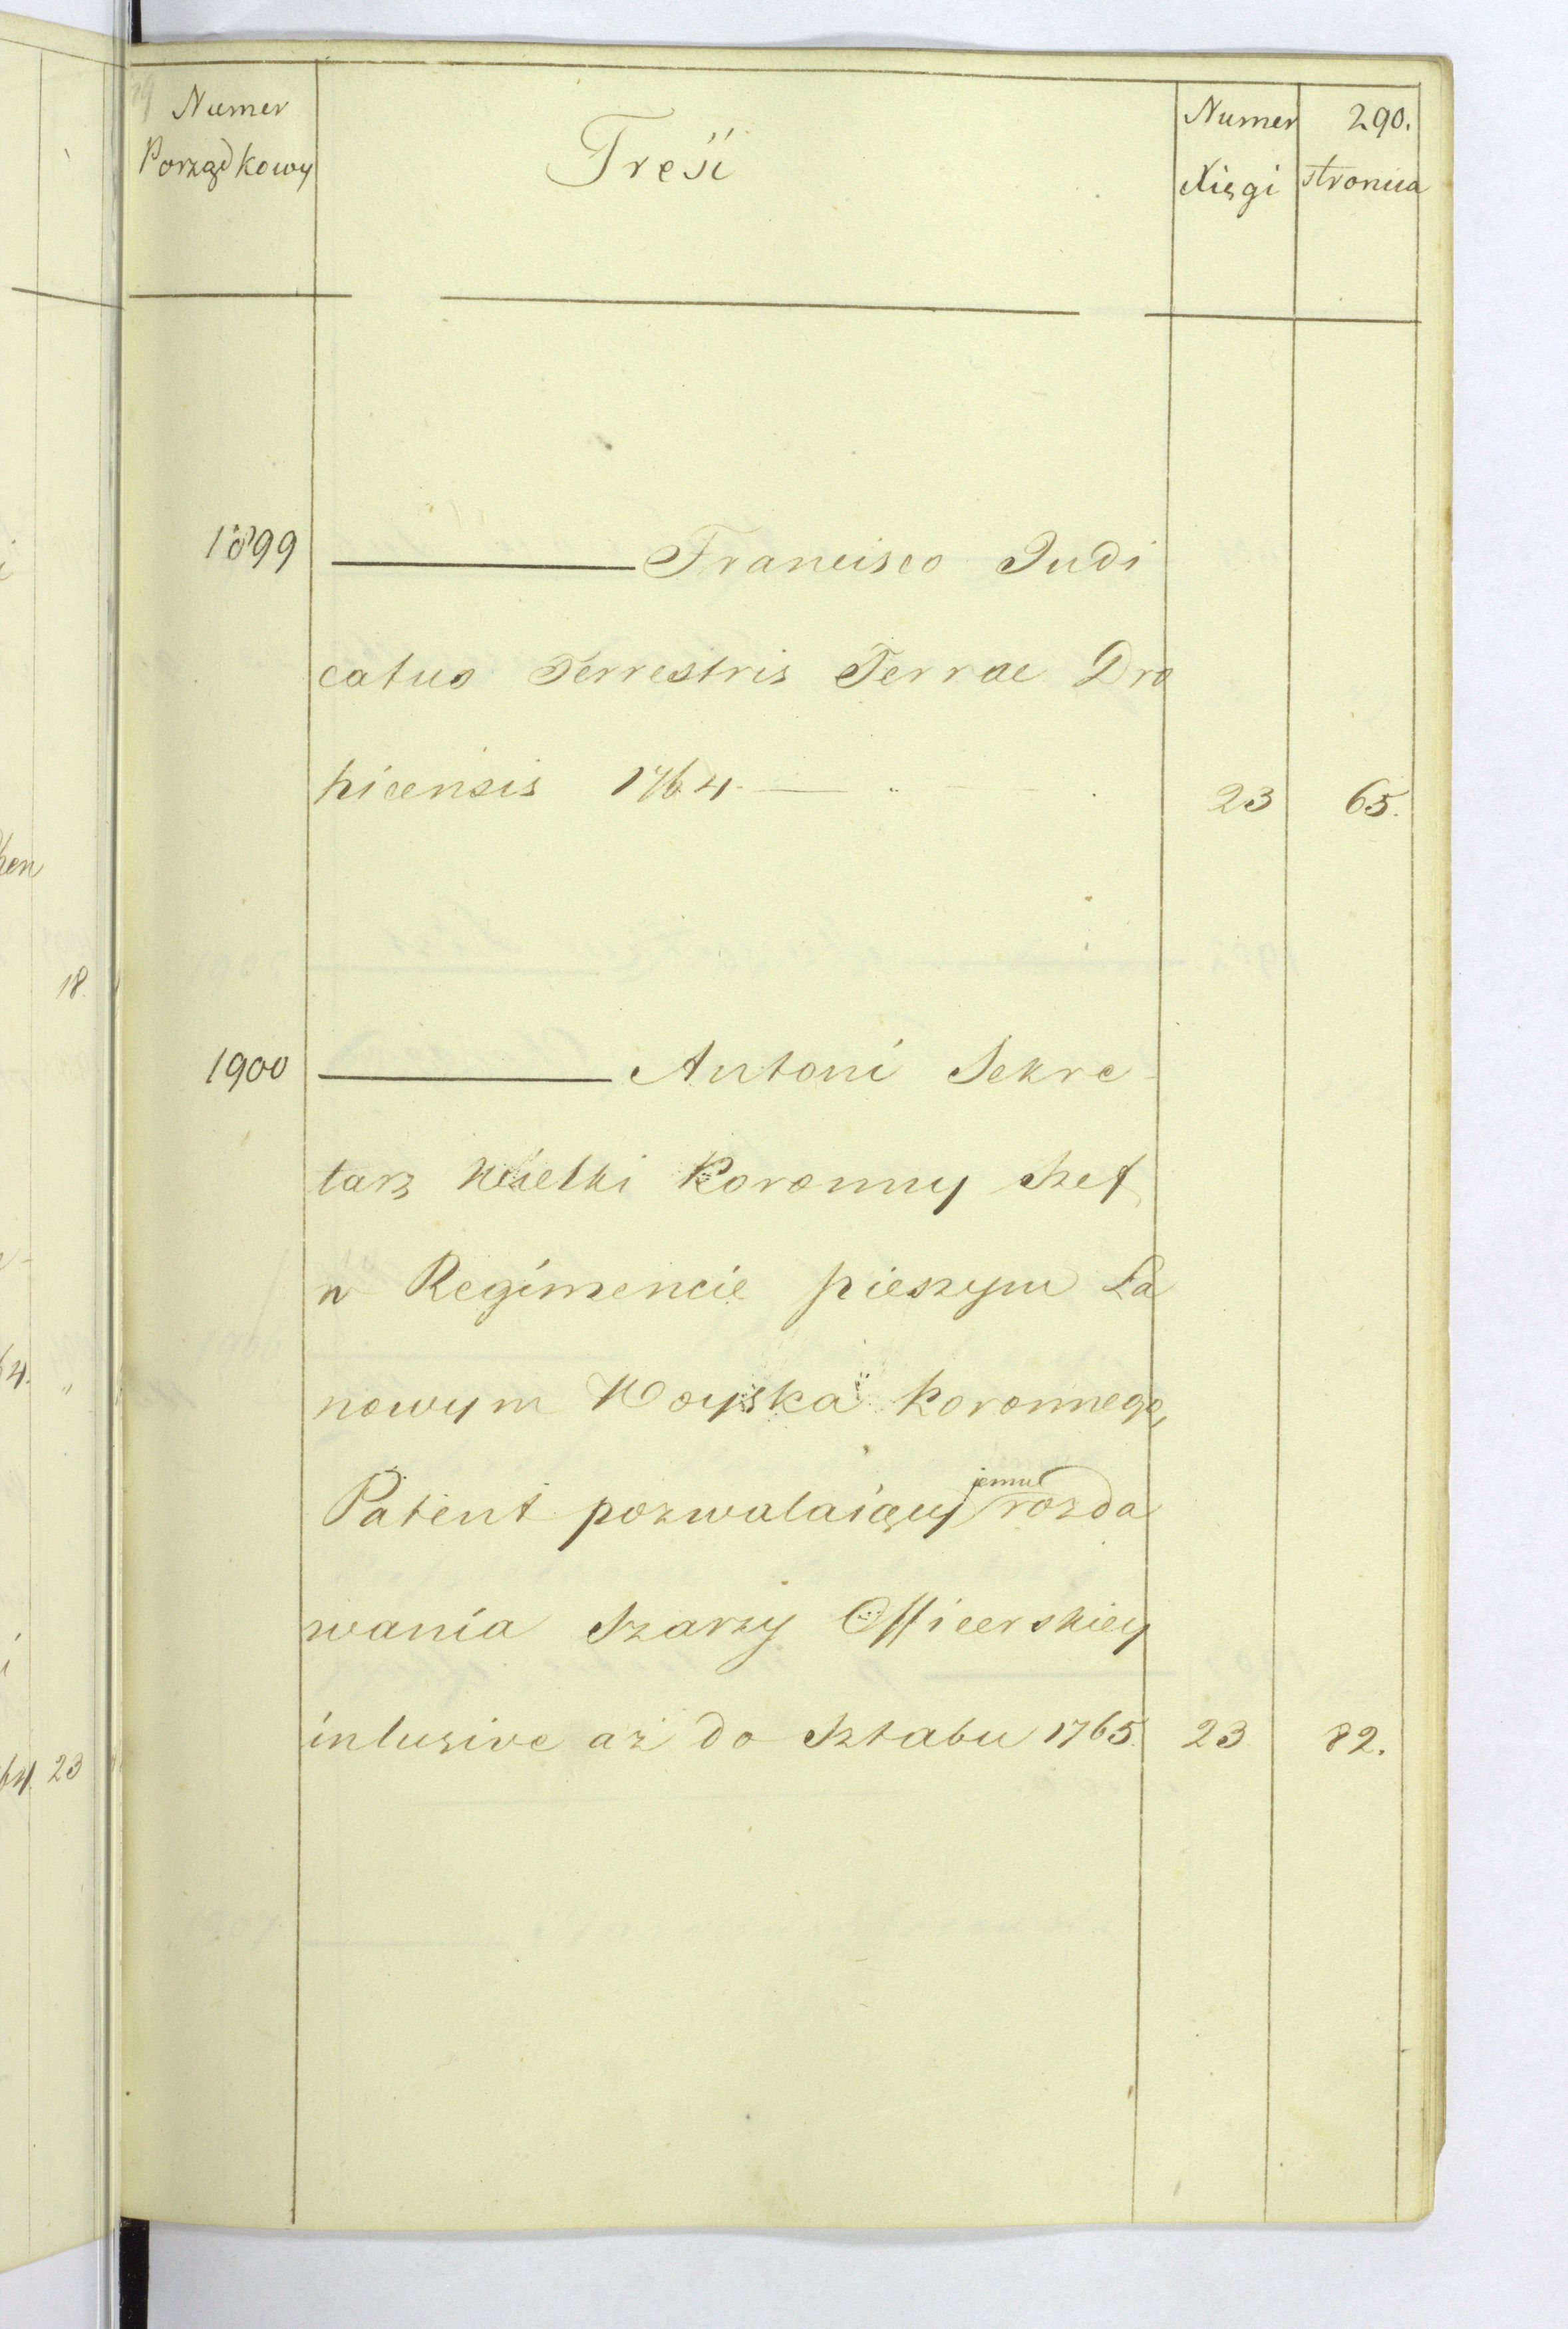 Numer Porządkowy
Treść
Numer Xięgi
290. stronica
1899 ——— Francisco Judi
catus Terrestris Terrae Dro
hicensis 1764 23 65.
1900 ——— Antoni Sekre-
tarz Wielki Koronny Szef
w Regimencie pieszym Ła
nowym Woyska Koronnego,
Patent pozwalaiący jemu rozda
wania Szarzy Officerskiey
inlusive aż do Sztabu 1765. 23. 82.
18.
64. 23